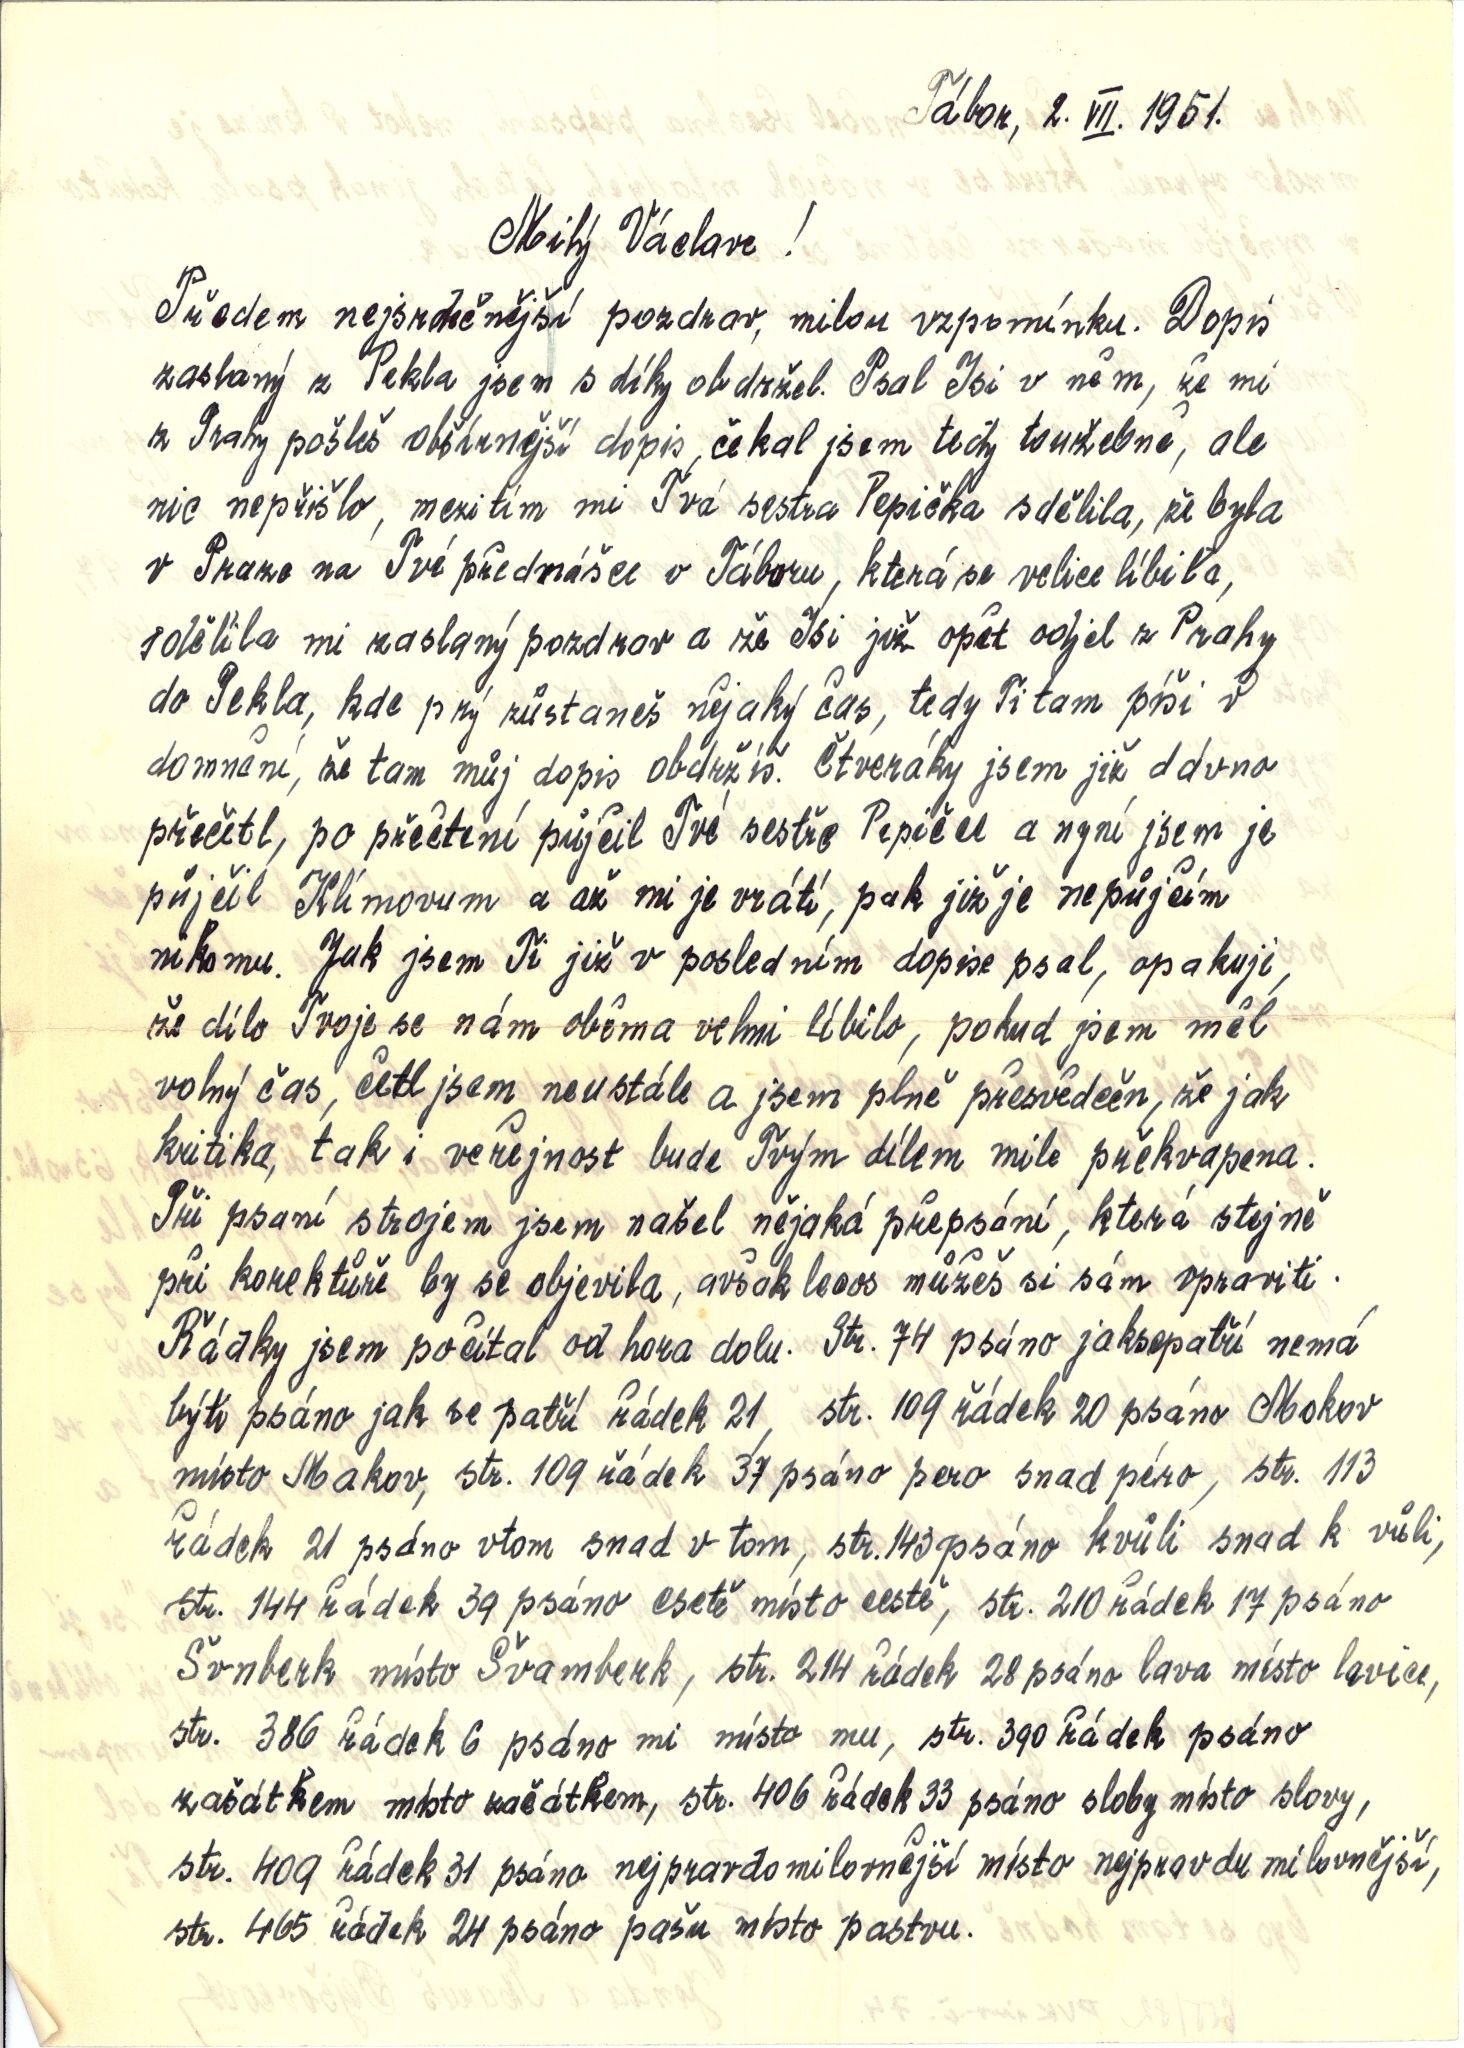 Tábor, 2. VII. 1951.
Milý Václave!
Předem nejsrdečnější pozdrav, milou vzpomínku. Dopis
zaslaný z Pekla jsem s díky obdržel. Psal Jsi v něm, že mi
z Prahy pošleš obšírnější dopis, čekal jsem tedy toužebně, ale
nic nepřišlo, mezitím mi Tvá sestra Pepička sdělila, že byla
v Praze na Tvé přednášce o Táboru, která se velice líbila,
sdělila mi zaslaný pozdrav a že Jsi již opět odjel z Prahy
do Pekla, kde prý zůstaneš nějaký čas, tedy Ti tam píši v
domnění, že tam můj dopis obdržíš. Čtveráky jsem již dávno
přečetl, po přečtení půjčil Tvé sestře Pepičce a nyní jsem je
půjčil Klímovum a až mi je vrátí, pak již je nepůjčím
nikomu. Jak jsem Ti již v posledním dopise psal, opakuji,
že dílo Tvoje se nám oběma velmi líbilo, pokud jsem měl
volný čas, četl jsem neustále a jsem plně přesvědčen, že jak
kritika, tak i veřejnost bude Tvým dílem mile překvapena.
Při psaní strojem jsem našel nějaká přepsání, která stejně
při korektůře by se objevila, avšak lecos můžeš si sám opraviti.
Řádky jsem počítal od hora dolu. Str. 74 psáno jaksepatří nemá
býti psáno jak se patří řádek 21, str. 109 řádek 20 psáno Mokov
místo Makov, str. 109 řádek 37 psáno pero snad péro, str. 113
řádek 21 psáno vtom snad v tom, str. 143 psáno kvůli snad k vůli,
str. 144 řádek 39 psáno csetě místo cestě, str. 210 řádek 17 psáno
Švnberk místo Švamberk, str. 214 řádek 28 psáno lava místo lavice,
str. 386 řádek 6 psáno mi místo mu, str. 390 řádek psáno
zašátkem místo začátkem, str. 406 řádek 33 psáno sloby místo slovy,
str. 409 řádek 31 psáno nejpravdomilovnější místo nejpravdu milovnější,
str. 465 řádek 24 psáno pašu místo pastvu.